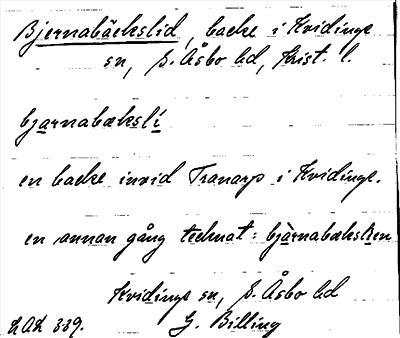 Bjernabäckslid, backe i Kvidinge
sn, S. Åsbo hd, Krist. l.
bjarnabækslí
en backe invid Tranarp i Kvidinge.
en annan gång tecknat: bjàrnabæksli̵en
Kvidinge sn, S. Åsbo hd
LAL 339. G. Billing